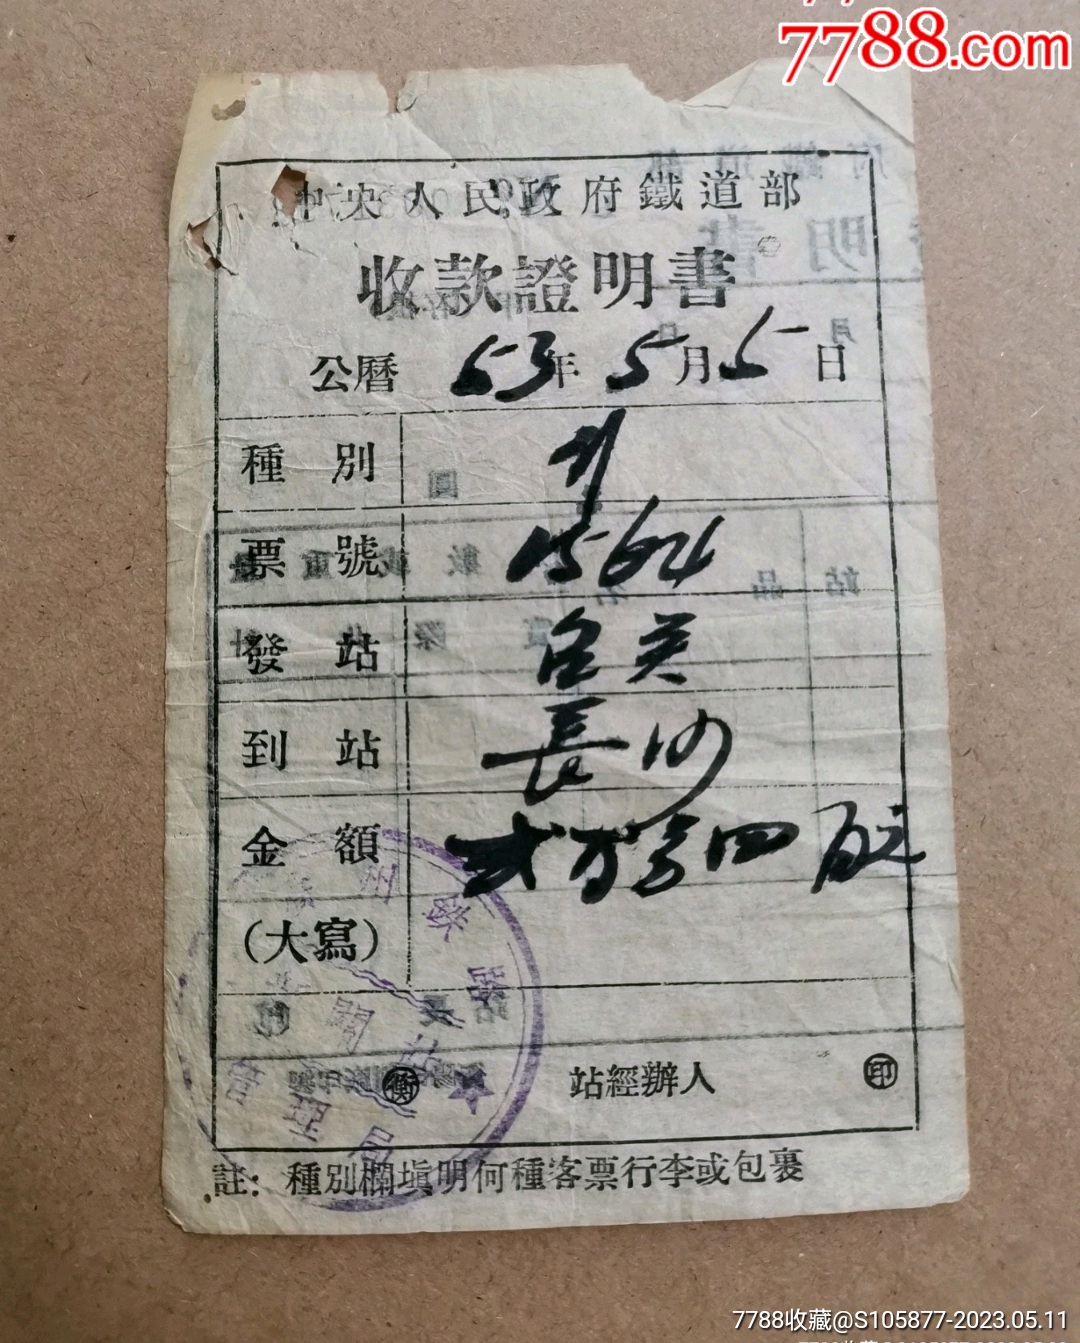 7788.com
中央人民政府鐵道部
收款證明書
公曆 53年 5月 5日
種別
票號 1564
發站
到站 長沙
金額 弍万零四百元
(大寫)
站經辦人 印
註：種別欄塡明何種客票行李或包裹
州 鐵 路
管 理 局
7788收藏@S105877-2023.05.11